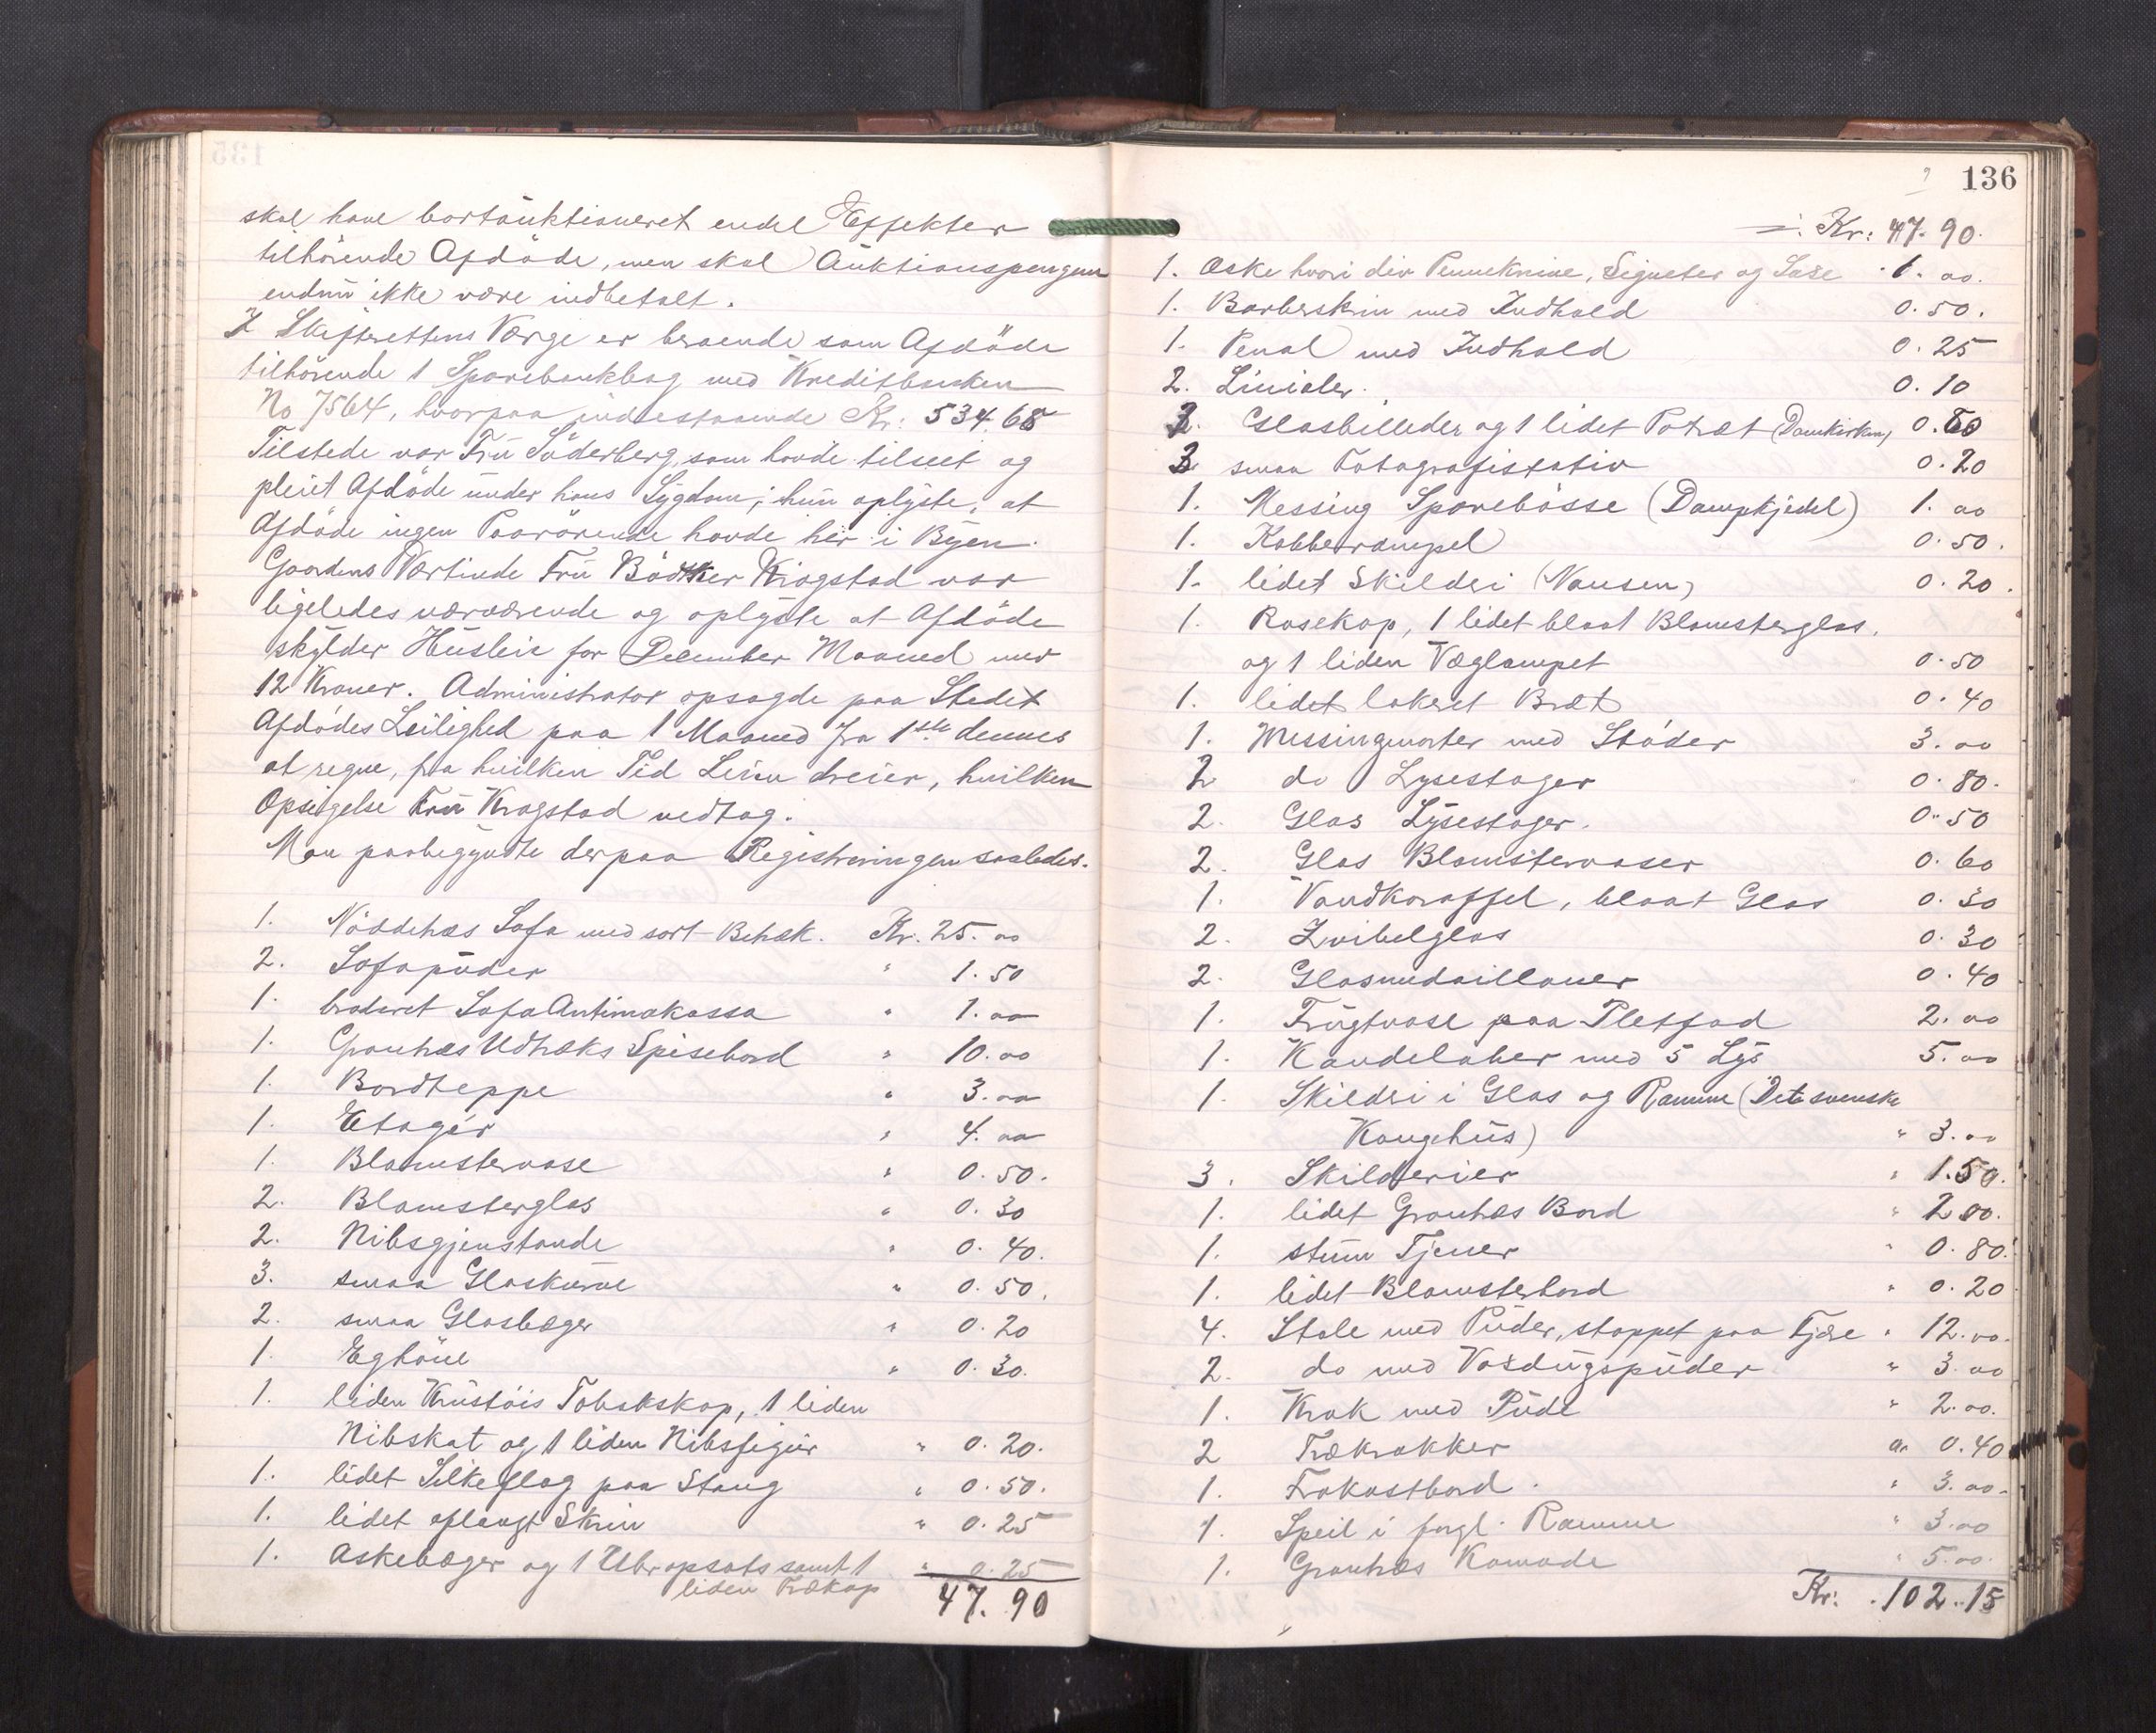 skal have bortauktioneret endel Effekter
tilhörende Afdöde, men skal Auktionspengene
endnu ikke være indbetalt.
I Skifterettens Værge er beroende som Afdöde
tilhörende 1 Sparebankbog med Kreditbanken
No 7564, hvorpaa indestaaende Kr: 534.68
Tilstede var Fru Söderberg, som havde tilseet og
pleiet Afdöde under hans Sygdom; hun oplyste, at
Afdöde ingen Paarörende havde her i Byen.
Gaardens Værtinde Fru Bödtker Krogstad var
ligeledes nærværende og oplyste at Afdöde
skylder Husleie for December Maaned med
12 Kroner. Administrator opsagde paa Stedet
Afdödes Leilighed paa 1 Maaned fra 1ste dennes
at regne, fra hvilken Tid Leien dreier, hvilken
Opsigelse Fru Krogstad vedtog.
Man paabegyndte derpaa Registreringen saaledes.
1. Nöddetræs Sofa med sort Betræk. Kr. 25.00
2. Sofapuder " 1.50
1. broderet Sofa Antimakassa " 1.00
1. Grantræs Udtræks Spisebord " 10.00
1. Bordteppe " 3.00
1. Etagér " 4.00
1. Blomstervase " 0.50.
2. Blomsterglas " 0.30
2. Nibsgjenstande " 0.40.
3. smaa Glaskurve " 0.50.
2. smaa Glasbæger " 0.20
1. Eghöne " 0.30.
1. liden Krustöis Tobakskop, 1 liden
Nibskat og 1 liden Nibsfigur " 0.20.
1. lidet Silkeflag paa Stang " 0.50.
1. lidet aflangt Skrin " 0.25
1. Askebæger og 1 Uhropsats samt 1 " 0.25
liden Trækop
47.90
136
Kr: 47.90.
1. Æske hvori div Penneknive, Signeter og Saxe 1.00.
1. Barberskrin med Indhold 0.50.
1. Penal med Indhold 0.25
2. Linialer. 0.10
3. Glasbilleder og 1 lidet Potræt (Domkirken) 0.60
3 smaa Fotografistativ 0.20
1. Messing Sparebösse (Dampkjedel) 1.00
1. Kobberampel 0.50.
1. lidet Skilderi (Nansen) 0.20.
1. Rosekop, 1 lidet blaat Blomsterglas.
og 1 liden Væglampet 0.50
1. lidet lakeret Bræt 0.40
1. Messingmorter med Stöder 3.00
2 do Lysestager 0.80.
2. Glas Lysestager. 0.50
2. Glas Blomstervaser 0.60
1. Vandkaraffel, blaat Glas 0.30
2. Zvibelglas 0.30
2. Glasmedailloner 0.40
1. Frugtvase paa Pletfod 2.00
1. Kandelaber med 5 Lys 5.00
1. Skilderi i Glas og Ramme (Det svenske
Kongehus) " 3.00
3. Skilderier " 1.50.
1. lidet Grantræs Bord " 2.00.
1. stum Tjener " 0.80.
1. lidet Blomsterbord " 0.20
4. Stole med Puder, stoppet paa Fjære " 12.00.
2. do med Voxdugspuder " 3.00
1. Krak med Pude " 2.00.
2 Trækrakker " 0.40
1. Frokostbord. " 3.00.
1. Speil i forgl. Ramme " 3.00
1. Grantræs Komode " 5.00.
Kr: 102.15